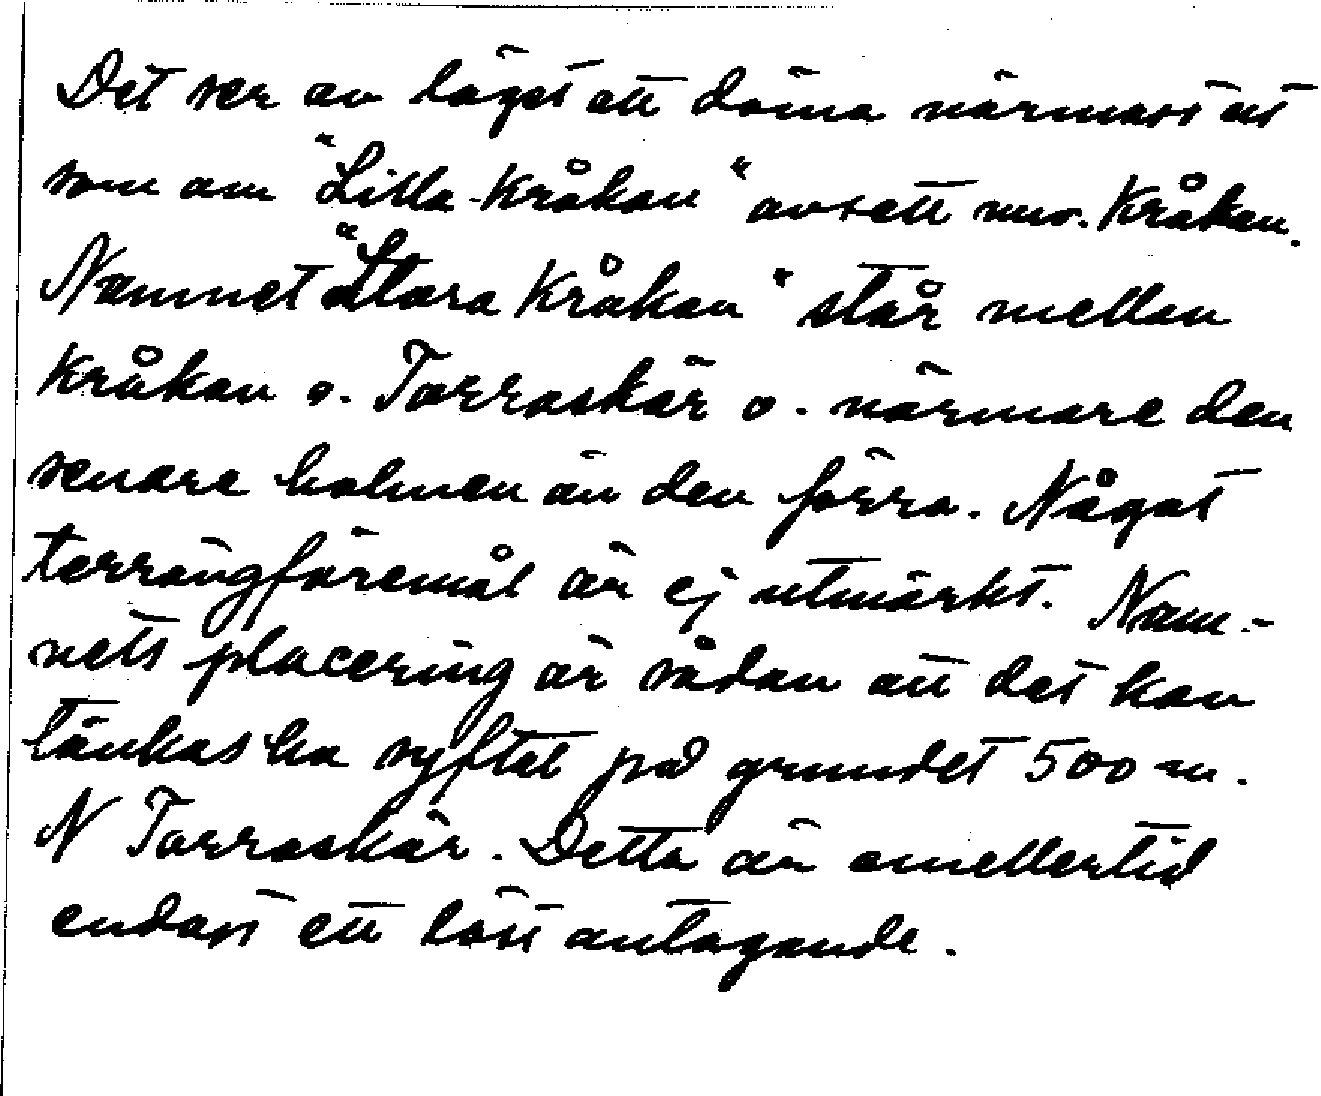 Det ser av läget att döma närmast ut
som om "Lilla Kråkan" avsett nuv. Kråkan.
Namnet "Stora Kråkan" står mellan
Kråkan o. Torraskär o. närmare den
senare holmen än den förra. Något
terrängföremål är ej utmärkt. Nam-
nets placering är sådan att det kan
tänkas ha syftat på grundet 500 m.
N Torraskär. Detta är emellertid
endast ett löst antagande.